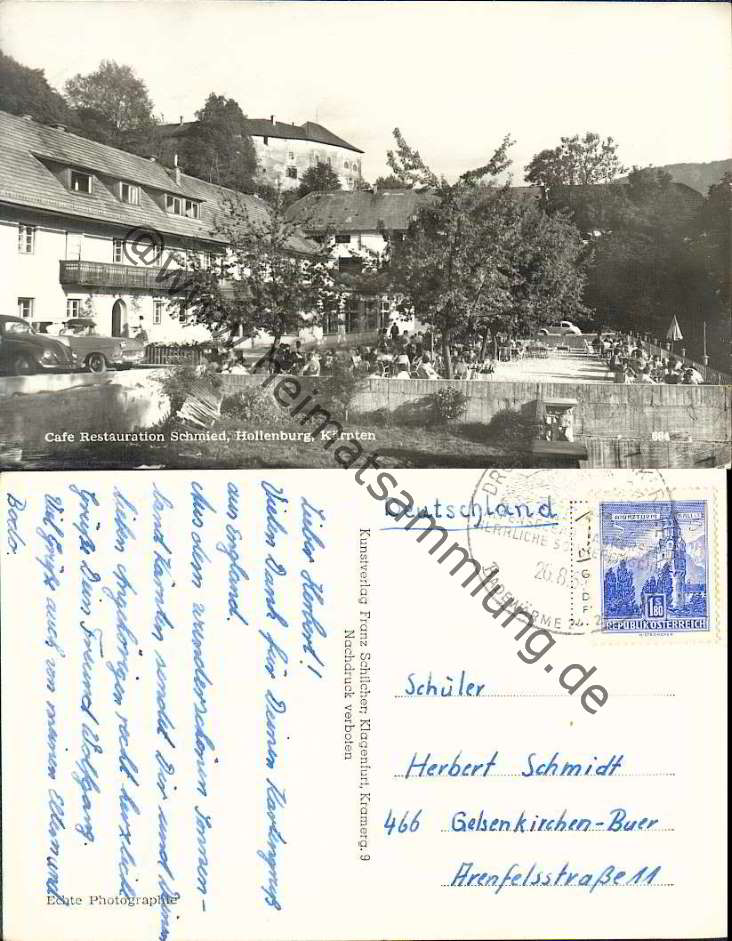 Cafe Restauration Schmied, Hollenburg, Kärnten
664
@www.heimatsammlung.de
Lieber Herbert!
Vielen Dank für Deinen Kartengruß
aus England.
Aus dem wunderschönen Sonnen-
land Kärnten sendet Dir und Deinen
lieben Angehörigen recht herzliche
Grüße Dein Freund Wolfgang.
Viel Grüße auch von meinen Eltern und
Bodo.
Echte Photographie
Kunstverlag Franz Schilcher, Klagenfurt, Kramerg. 9
Nachdruck verboten
Deutschland
HERRLICHE
26.8.
1.80
REPUBLIK ÖSTERREICH
Schüler
Herbert Schmidt
466 Gelsenkirchen-Buer
Arenfelsstraße 11